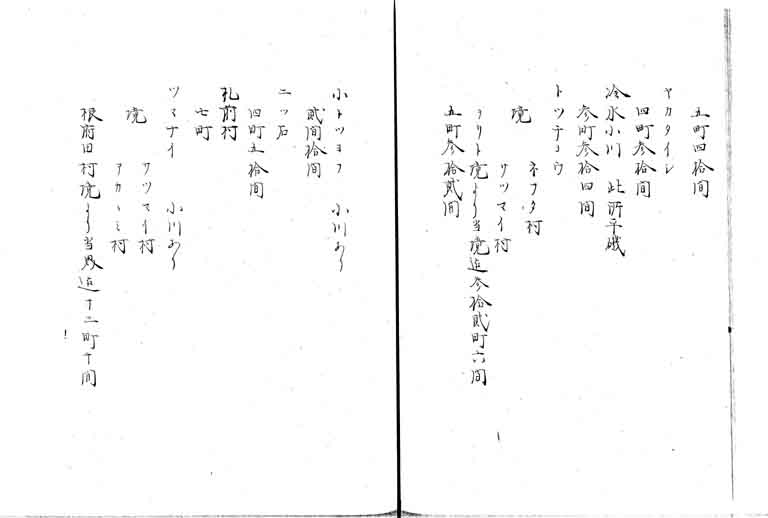 五町四拾間
ヤカタイシ
四町参拾間
冷水小川 此所平磯
参町参拾四間
トツテコウ
境 ネフタ村
サツマイ村
ヲリト境より当境迄参拾貮町六間
五町参拾貮間
小トツヨフ 小川あり
貮間拾間
二ツ石
四町五拾間
札前村
七町
ツマナイ 小川あり
境 サツマイ村
アカヽミ村
根府田村境より当所迄丁二町十間